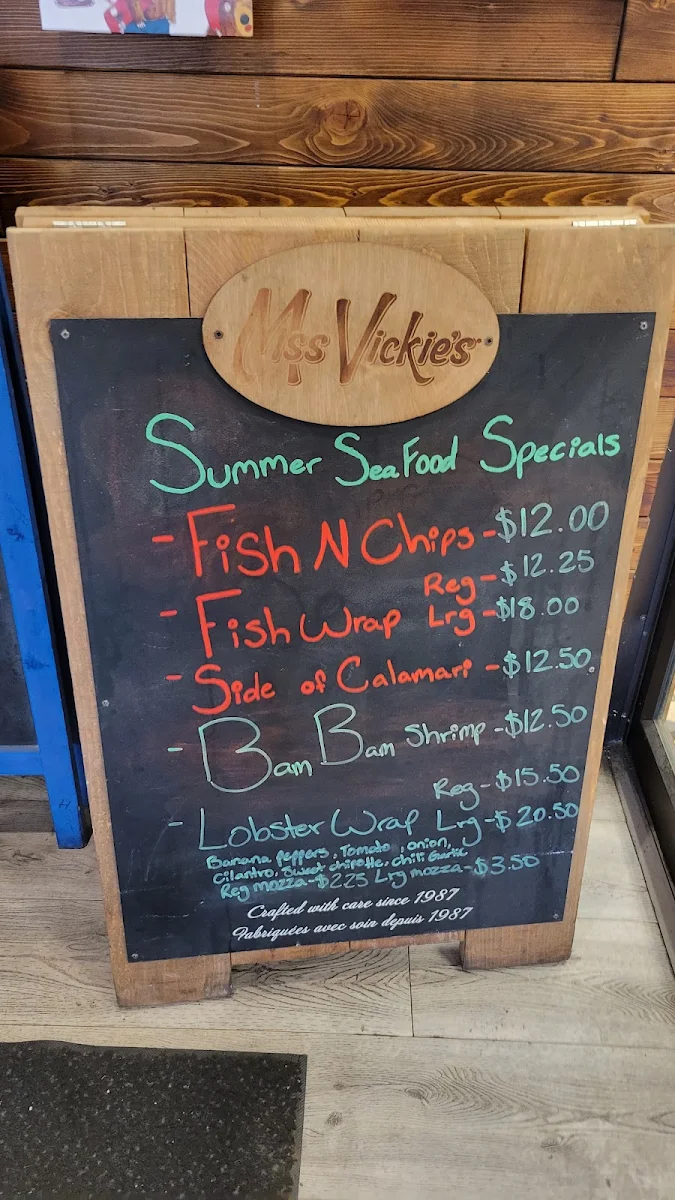 Mss Vickie's
Summer SeaFood Specials
- Fish N Chips - $12.00
Reg - $12.25
- Fish Wrap Lrg - $18.00
- Side of Calamari - $12.50
- Bam Bam Shrimp - $12.50
Reg - $15.50
- Lobster Wrap Lrg - $20.50
Banana peppers, Tomato, onion,
Cilantro, Sweet chipotle, chili Garlic
Reg mozza - $2.25 Lrg mozza - $3.50
Crafted with care since 1987
Fabriquées avec soin depuis 1987